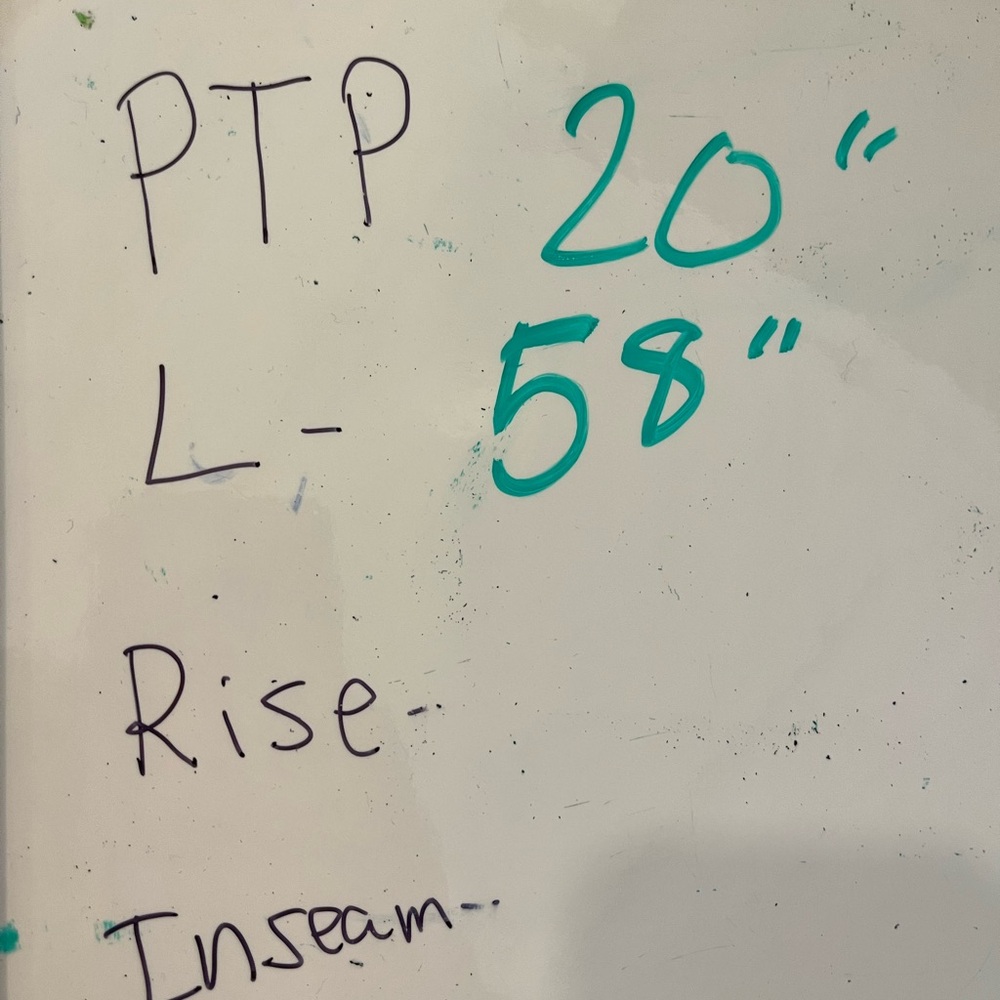 PTP 20"
L - 58"
Rise-
Inseam--